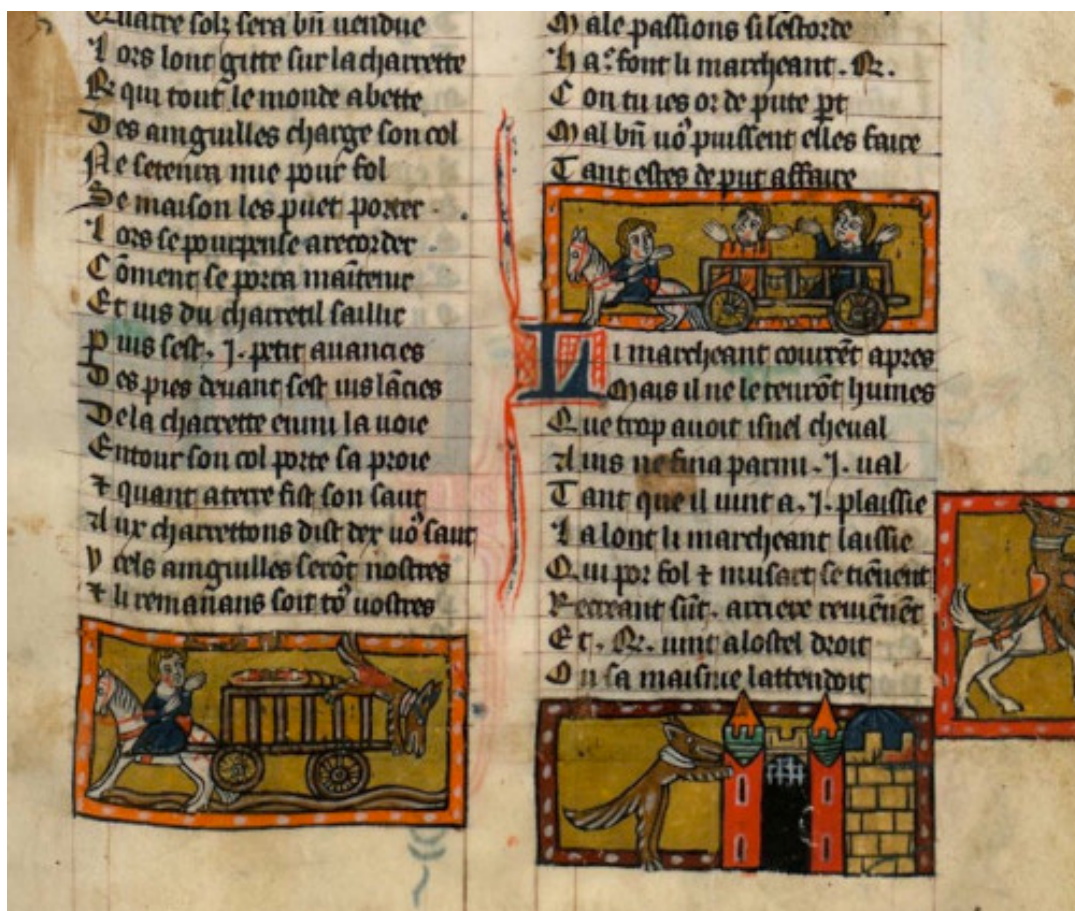 Quatre solz sera bñ uendue
Lors lont gitte sur la charrette
R qui tout le monde abette
Des amguilles charge son col
Ne se tenra mie pour fol
Se maison les puet porter
Lors se pourpense a recorder
Cōment se porra maītenir
Et ius du charretil saillir
Puis sest . j . petit auancies
Des pies deuant sest ius lācies
De la charrette enmi la uoie
Entour son col porte sa proie
⁊ quant a terre fist son saut
Aux charrettons dist dex uoꝰ saut
Ycels amguilles serōt nostres
⁊ li remañans soit toꝰ uostres
Male passions si lestorde
Ha . font li marcheant . R .
Con tu ies or de pute pt
Mal bñ uoꝰ puissent elles faire
Tant estes de put affaire
Li marcheant courēt apres
Mais il ne le tenrōt huimes
Que trop auoit isnel cheual
Ains ne fina parmi . j . ual
Tant que il uint a . j . plaissie
La lont li marcheant laissie
Qui por fol ⁊ musart se tiēnent
Recreant sūt . arriere reuiēnēt
Et . R . uint a lostel droit
Ou sa maisnie lattendoit